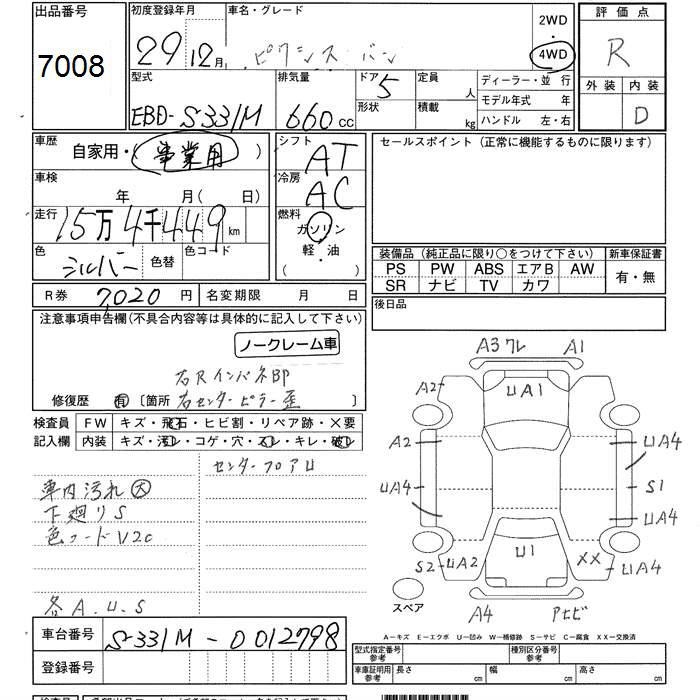 出品番号 初度登録年月 車名・グレード 2WD 評価点
7008 29年12月 ピクシス バン 4WD R
型式 排気量 ドア 定員 ディーラー・並 行 外装 内装
EBD-S331M 660cc 5 人 モデル年式 年 D
形状 積載 kg ハンドル 左・右
車歴 シフト セールスポイント(正常に機能するものに限ります)
自家用・(事業用) AT
車検 年 月(日) 冷房 AC
走行 15万4千449km 燃料
ガソリン
色 シルバー 色替 色コード 軽・油
( )
装備品(純正品に限り○をつけて下さい) 新車保証書
PS PW ABS エアB AW 有・無
SR ナビ TV カワ
R券 7,020円 名変期限 月 日 後日品
注意事項申告欄(不具合内容等は具体的に記入して下さい)
ノークレーム車
右Rインパネ部
修復歴 有 〔箇所 右センターピラー歪 〕
検査員 FW キズ・飛石・ヒビ割・リペア跡・×要
記入欄 内装 キズ・汚レ・コゲ・穴・スレ・キレ・破レ
センターフロアU
車内汚れ大
下廻りS
色コードV2C
各A.U.S
A3 ワレ A1
A2 UA1
A2 UA4
UA4 S1
UA4
S2 UA2 U1 XX UA4
スペア A4 Aヒビ
A-キズ E-エクボ U-凹み W-補修跡 S-サビ C-腐食 XX-交換済
車台番号 S331M-0012798
登録番号
型式指定番号 参考 種別区分番号 参考
車庫証明用 参考 長さ cm 幅 cm 高さ cm